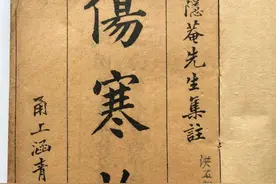 隱菴先生集註
傷寒
甬工涵青